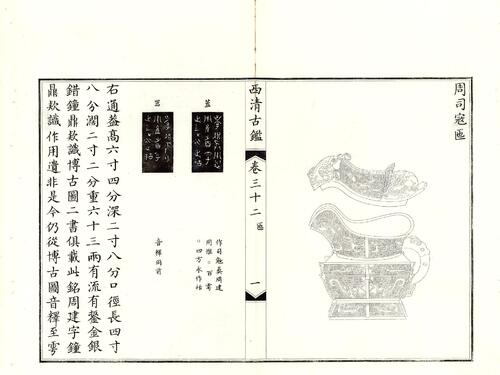 周司寇匜
西清古鑑
卷三十二
匜
一
蓋
作司寇彝周建
用惟○百雩
○四方永作祜
器
音釋同前
右通蓋高六寸四分深二寸八分口徑長四寸
八分濶二寸二分重六十三兩有流有鋬金銀
錯鐘鼎欵識博古圖二書俱載此銘周建字鐘
鼎欵識作用遺非是今仍從博古圖音釋至雩